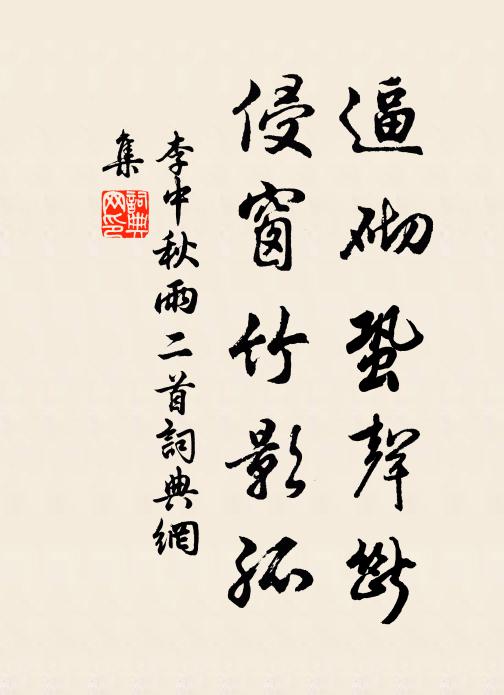 逼砌蛩聲斷
侵窗竹影孤
李中秋雨二首詞典網
集
詞典網印